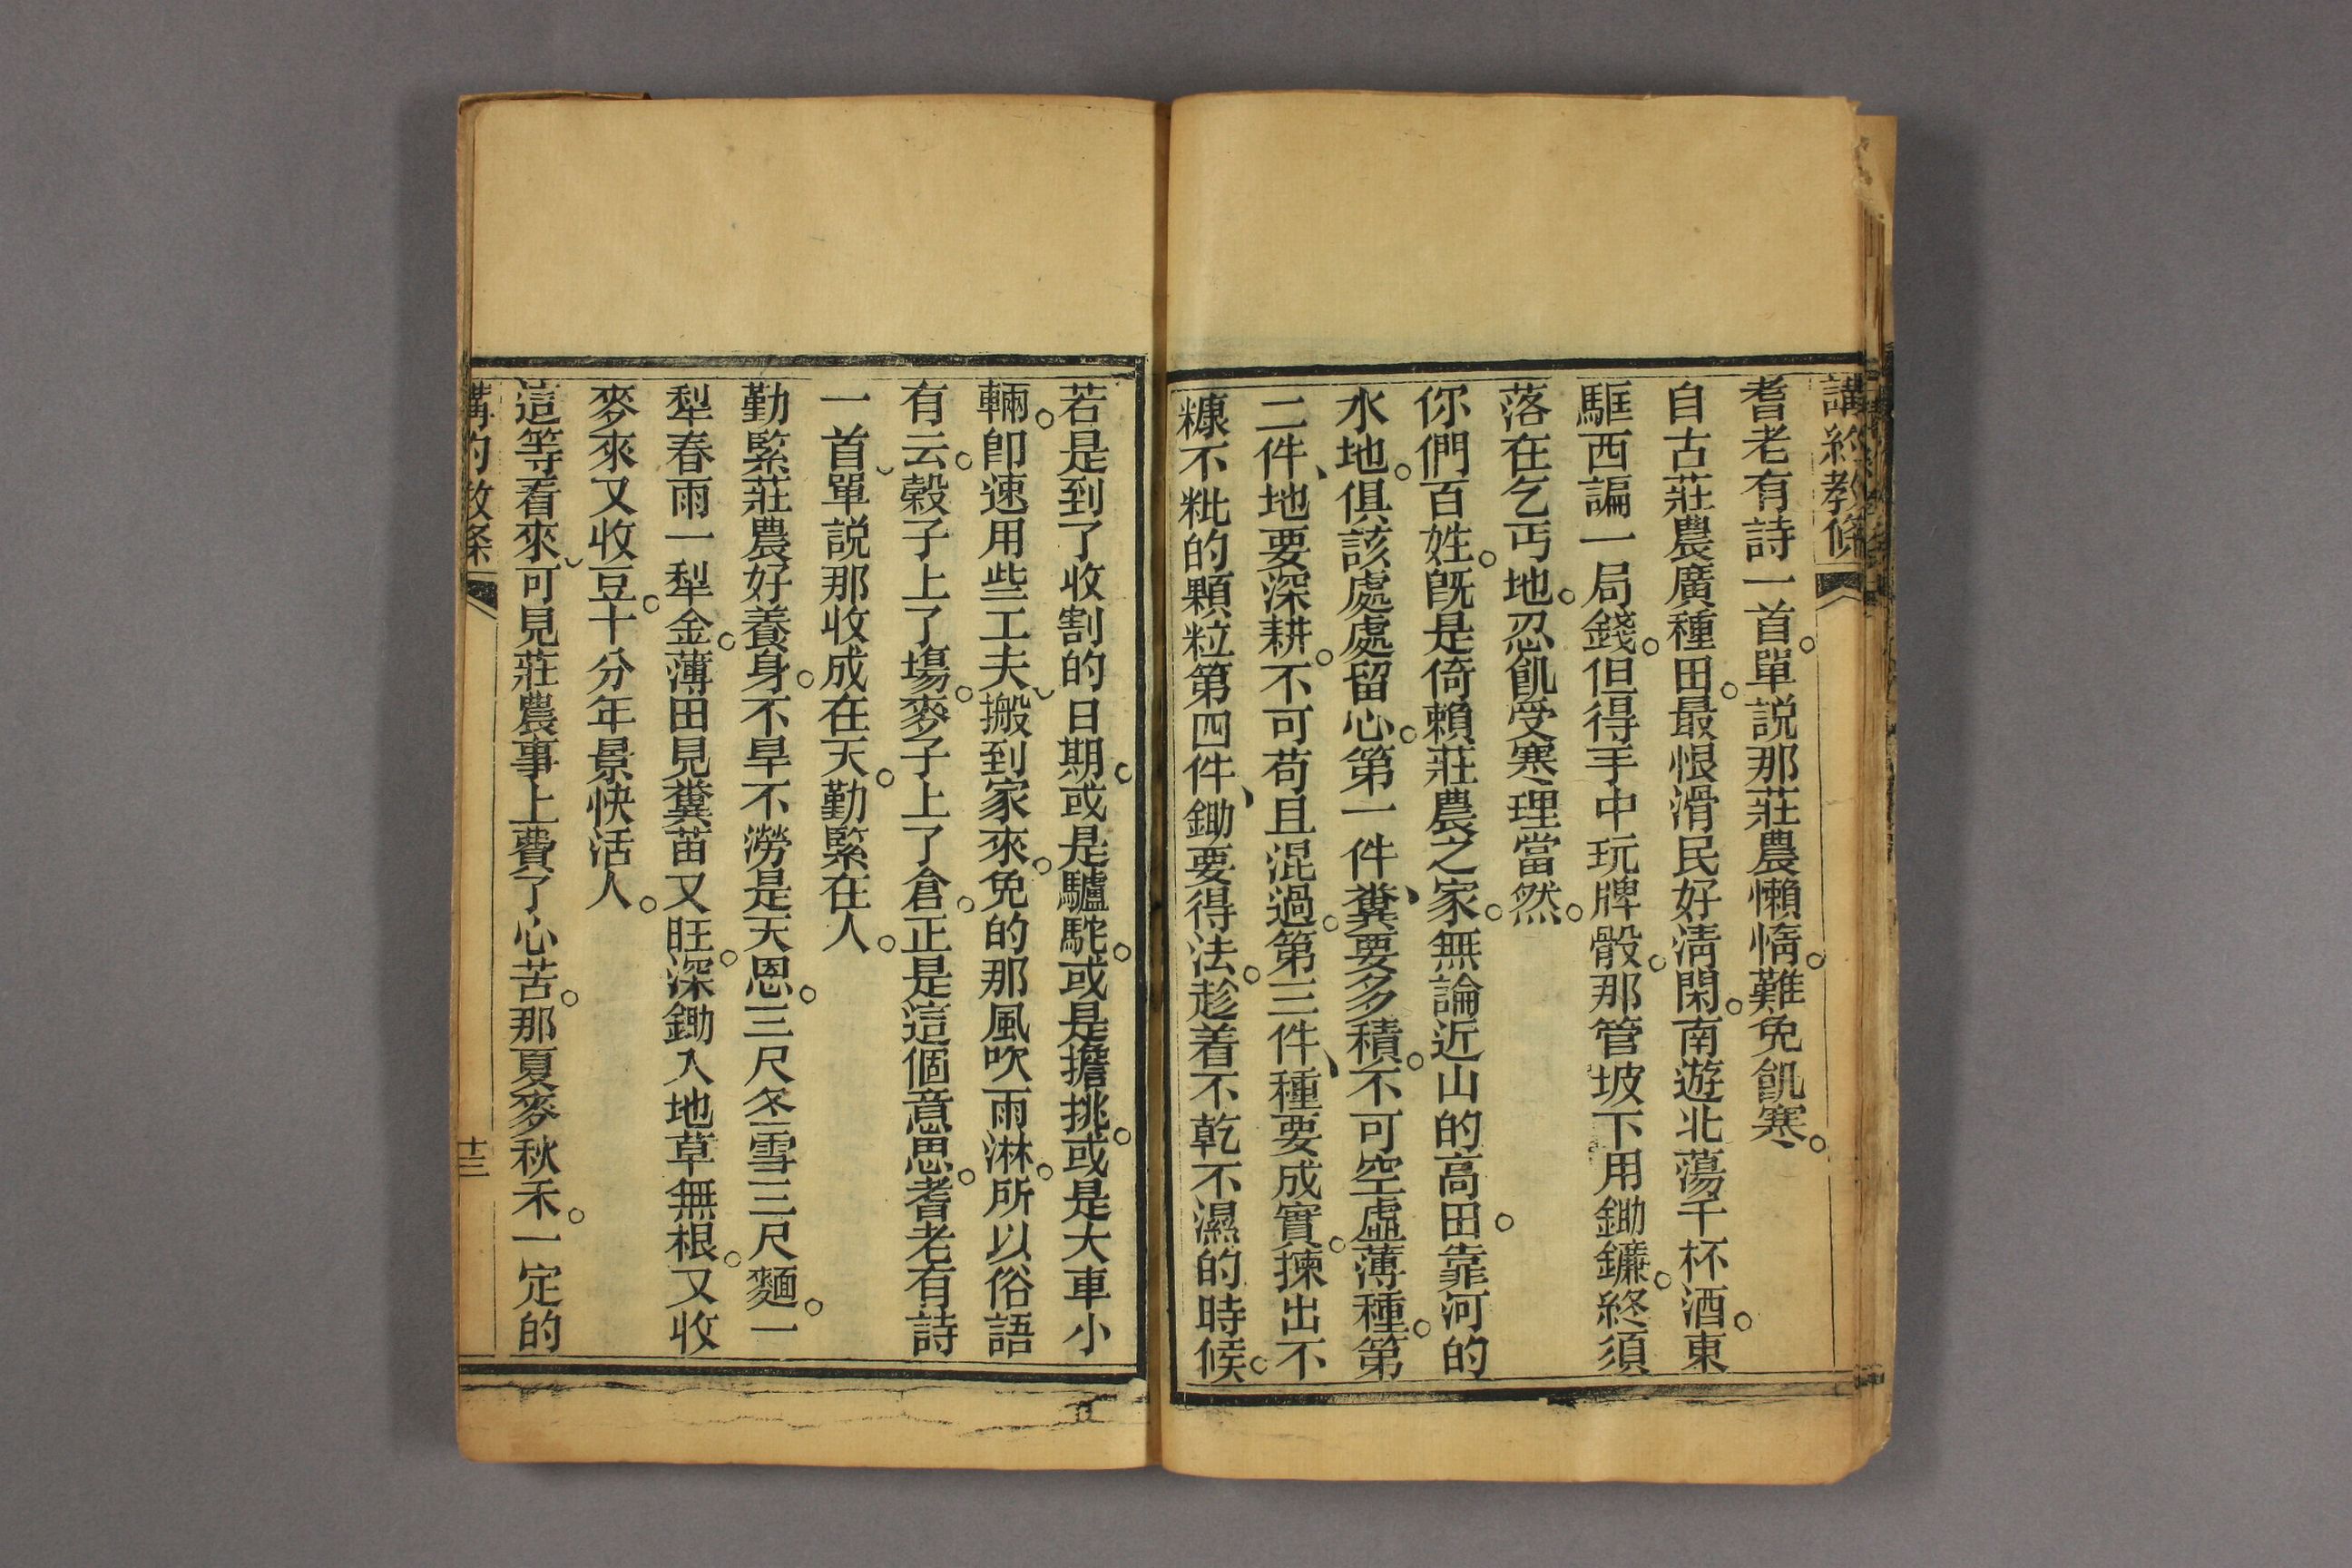 講約教條
耆老有詩一首。單說那莊農懶惰。難免飢寒。
自古莊農廣種田。最恨滑民好淸閑。南遊北蕩千杯酒。東
駏西諞一局錢。但得手中玩牌骰。那管坡下用鋤鐮。終須
落在乞丐地。忍飢受寒理當然。
你們百姓。旣是倚賴莊農之家。無論近山的高田。靠河的
水地。俱該處處留心。第一件、糞要多積。不可空虛薄種。第
二件、地要深耕。不可苟且混過。第三件、種要成實。揀出不
糠不粃的顆粒第四件、鋤要得法。趁着不乾不濕的時候。
若是到了收割的日期。或是驢駝。或是擔挑。或是大車小
輛。卽速用些工夫搬到家來。免的那風吹雨淋。所以俗語
有云。穀子上了塲。麥子上了倉。正是這個意思。耆老有詩
一首單說那收成在天。勤緊在人。
勤緊莊農好養身。不旱不澇是天恩。三尺冬雪三尺麵。一
犁春雨一犁金。薄田見糞苗又旺。深鋤入地草無根。又收
麥來又收豆。十分年景快活人。
這等看來可見莊農事上費了心苦。那夏麥秋禾。一定的
講約教條
十三